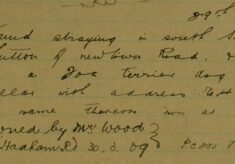 29th
und straying in south S
ution of newtown Road.
a Fox terrier dog
with address
name thereon
oned by Mr Wood
Hadham Rd 30.3.09